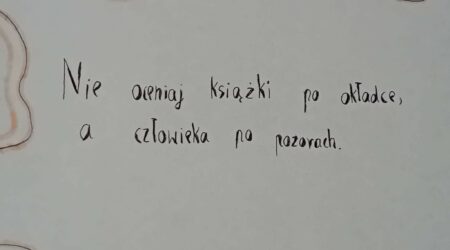 Nie oceniaj książki po okładce,
a człowieka po pozorach.